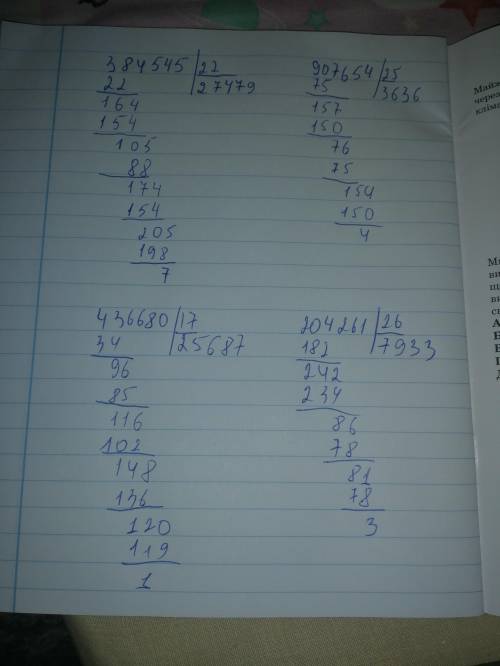 384545 22
22 27479
164
154
105
88
174
154
205
198
7
907654 25
75 3636
157
150
76
75
154
150
4
436680 17
34 25687
96
85
116
102
148
136
120
119
1
204261 26
182 7933
242
234
86
78
81
78
3
Майж
через